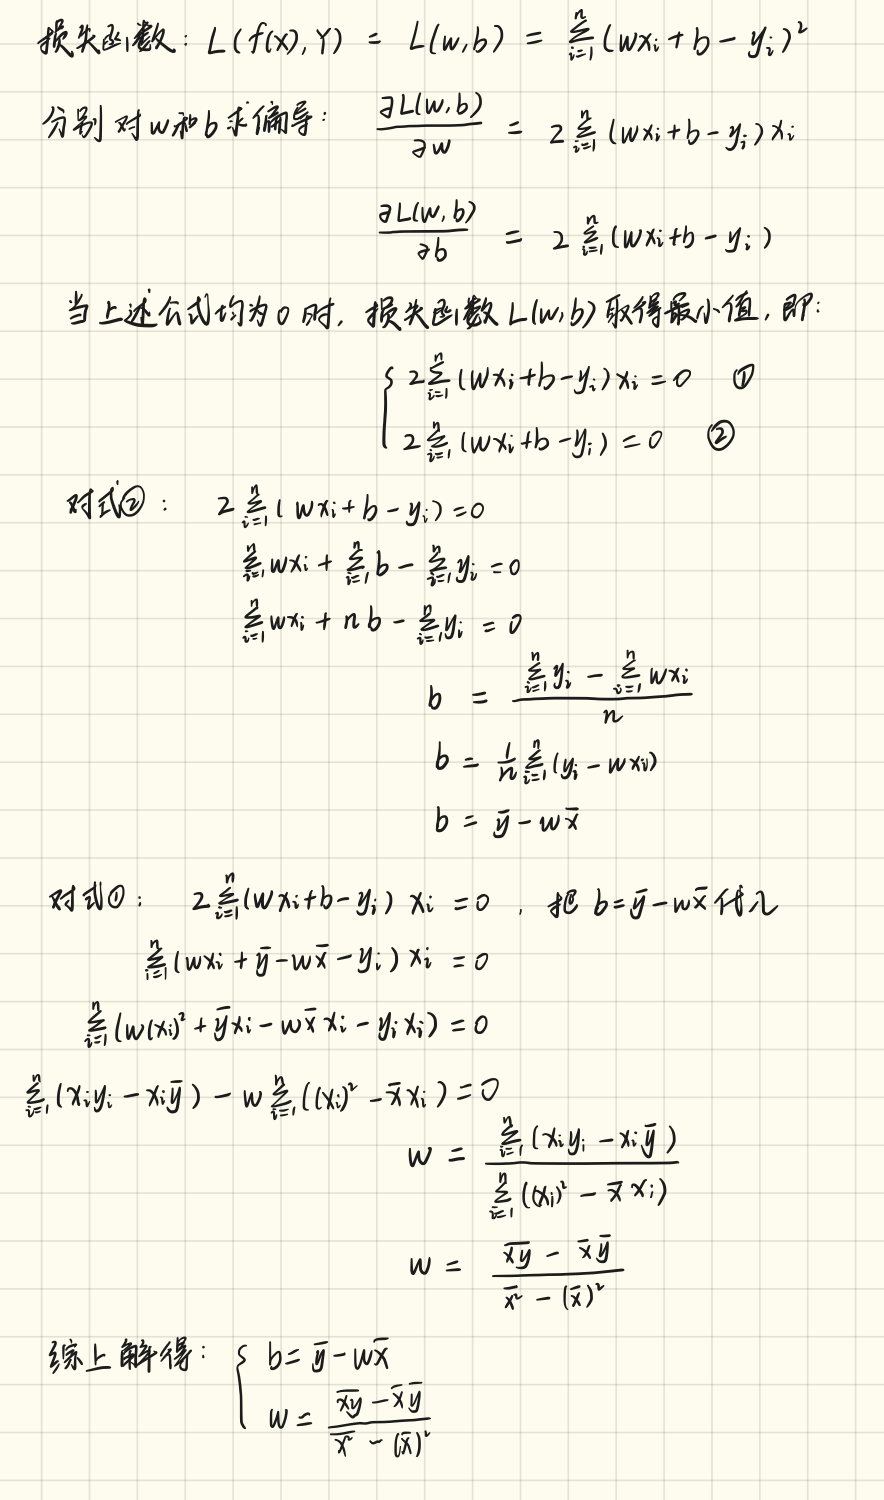 损失函数: L(f(x), Y) = L(w,b) = \sum_{i=1}^{n} (wx_i + b - y_i)^2
分别对w和b求偏导: \frac{∂L(w,b)}{∂w} = 2\sum_{i=1}^{n} (wx_i + b - y_i) x_i
\frac{∂L(w,b)}{∂b} = 2\sum_{i=1}^{n} (wx_i + b - y_i)
当上述公式均为0时, 损失函数L(w,b)取得最小值, 即:
{ 2\sum_{i=1}^{n} (wx_i + b - y_i) x_i = 0 ①
2\sum_{i=1}^{n} (wx_i + b - y_i) = 0 ②
对式②: 2\sum_{i=1}^{n} (wx_i + b - y_i) = 0
\sum_{i=1}^{n} wx_i + \sum_{i=1}^{n} b - \sum_{i=1}^{n} y_i = 0
\sum_{i=1}^{n} wx_i + nb - \sum_{i=1}^{n} y_i = 0
b = \frac{\sum_{i=1}^{n} y_i - \sum_{i=1}^{n} wx_i}{n}
b = \frac{1}{n} \sum_{i=1}^{n} (y_i - wx_i)
b = \bar{y} - w\bar{x}
对式①: 2\sum_{i=1}^{n} (wx_i + b - y_i) x_i = 0, 把 b = \bar{y} - w\bar{x} 代入
\sum_{i=1}^{n} (wx_i + \bar{y} - w\bar{x} - y_i) x_i = 0
\sum_{i=1}^{n} (w(x_i)^2 + \bar{y}x_i - w\bar{x}x_i - y_i x_i) = 0
\sum_{i=1}^{n} (x_i y_i - x_i \bar{y}) - w\sum_{i=1}^{n} ((x_i)^2 - \bar{x}x_i) = 0
w = \frac{\sum_{i=1}^{n} (x_i y_i - x_i \bar{y})}{\sum_{i=1}^{n} ((x_i)^2 - \bar{x}x_i)}
w = \frac{\overline{xy} - \bar{x}\bar{y}}{\overline{x^2} - (\bar{x})^2}
综上解得: { b = \bar{y} - w\bar{x}
w = \frac{\overline{xy} - \bar{x}\bar{y}}{\overline{x^2} - (\bar{x})^2}